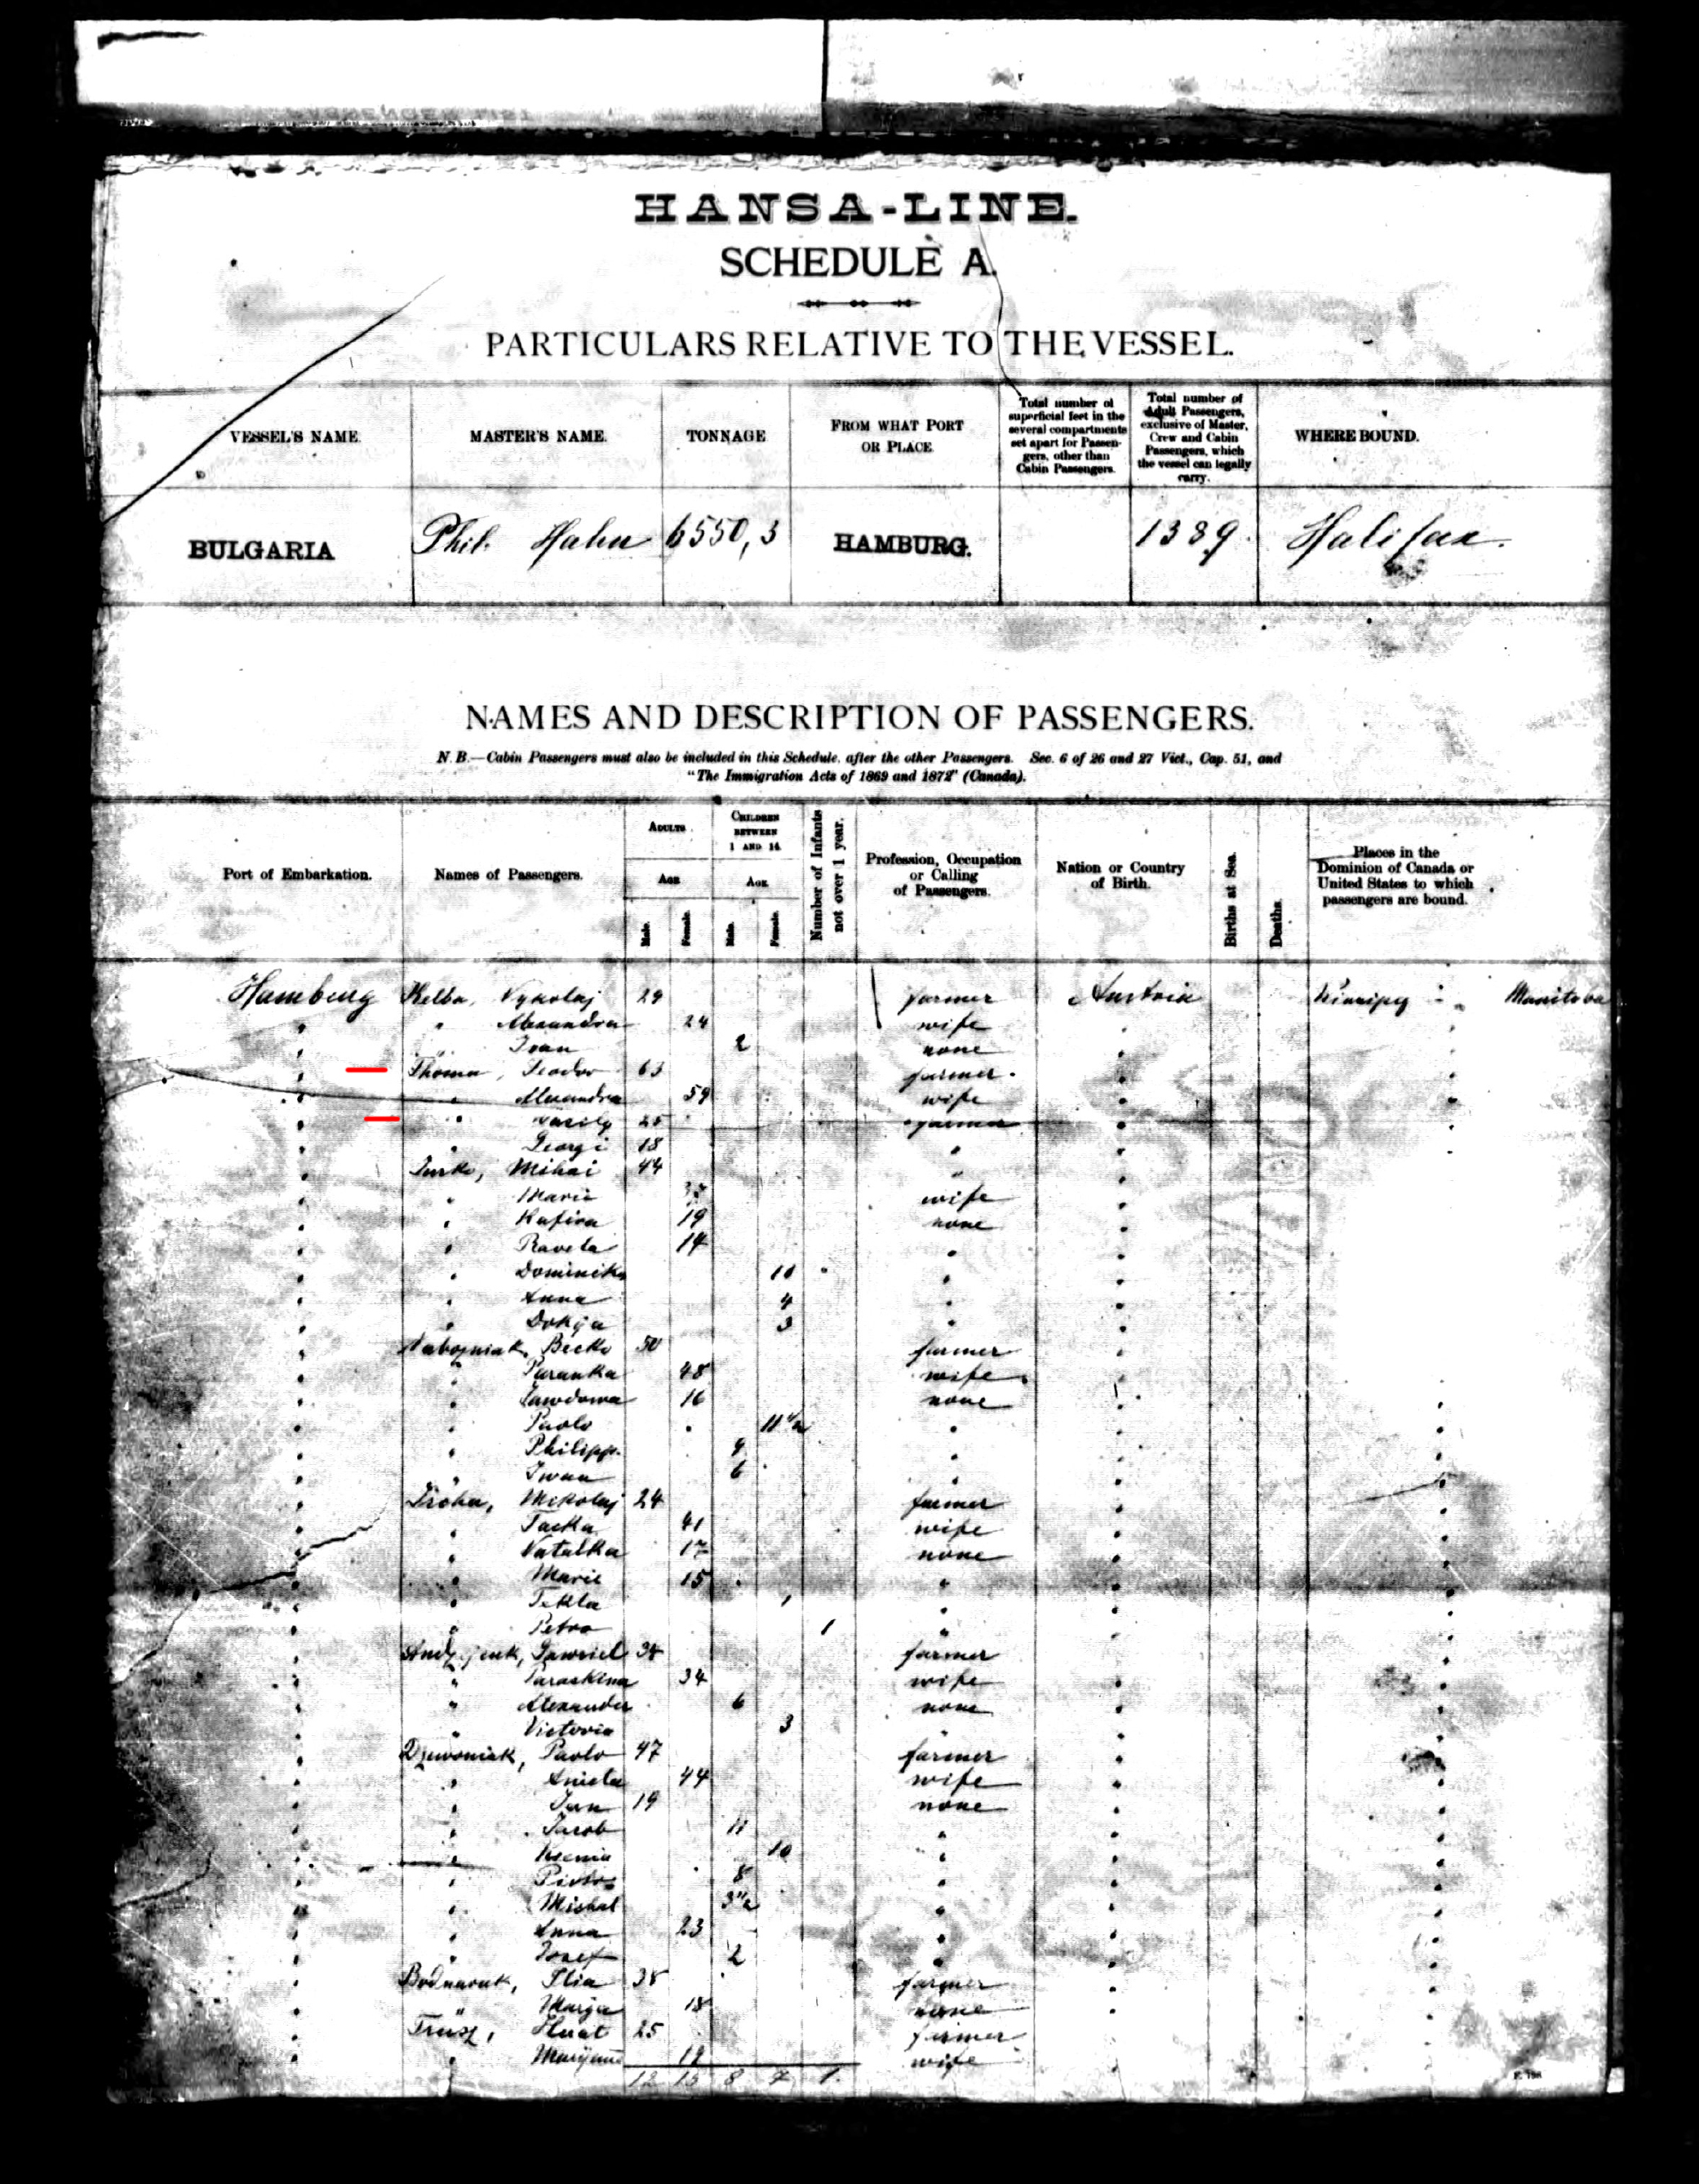 HANSA-LINE.
SCHEDULE A.
PARTICULARS RELATIVE TO THE VESSEL.
VESSEL'S NAME. MASTER'S NAME. TONNAGE FROM WHAT PORT OR PLACE. Total number of superficial feet in the several compartments set apart for Passengers, other than Cabin Passengers. Total number of Adult Passengers, exclusive of Master, Crew and Cabin Passengers, which the vessel can legally carry. WHERE BOUND.
BULGARIA Phil. Hahn 6550,3 HAMBURG. 1389. Halifax.
NAMES AND DESCRIPTION OF PASSENGERS.
N. B.—Cabin Passengers must also be included in this Schedule, after the other Passengers. Sec. 6 of 26 and 27 Vict., Cap. 51, and
"The Immigration Acts of 1869 and 1872" (Canada).
Port of Embarkation. Names of Passengers. ADULTS. AGE Male. Female. CHILDREN BETWEEN 1 AND 14. AGE. Male. Female. Number of Infants not over 1 year. Profession, Occupation or Calling of Passengers. Nation or Country of Birth. Births at Sea. Deaths. Places in the Dominion of Canada or United States to which passengers are bound.
Hamburg Kelba, Nykolaj 29 farmer Austria Winnipeg Manitoba
" " Alexandra 24 wife "
" " Ivan 2 none "
" Thoma, Feodor 63 farmer. "
" " Alexandra 59 wife "
" " Vasily 25 farmer "
" " Georgi 18 " "
" Turko, Mihai 44 " "
" " Marie wife "
" " Hafira 19 none "
" " Raveta 14 " "
" " Dominika " "
" " Anna 4 " "
" " Dokija 3 " "
" Nabozniak, Becko 50 farmer "
" " Paranka 48 wife "
" " 16 none "
" " Pavlo 11 1/2 " "
" " Philipp. 9 " "
" " Iwan 6 " "
" Mikolaj 24 farmer "
" " Tacka 41 wife "
" " Natalka 17 none "
" " Marie 15 " "
" " Tekla 1 " "
" " Petro 1 " "
" Gawriel farmer "
" " Paraskina 34 wife "
" " Alexander 6 none "
" " Victoria 3 " "
" Dzwoniak, Pavlo 47 farmer "
" " Aniela 44 wife "
" " Jan 19 none "
" " Jacob 11 " "
" " Ksenia 10 " "
" " Piotr 8 " "
" " Michal 3 1/2 " "
" " Anna 23 " "
" " Josef 2 " "
" Bodnaruk, Ilia 38 farmer "
" " Marija 18 none "
" Trusz, Hnat 25 farmer
" " Maryana wife
12 15 8 7 1.